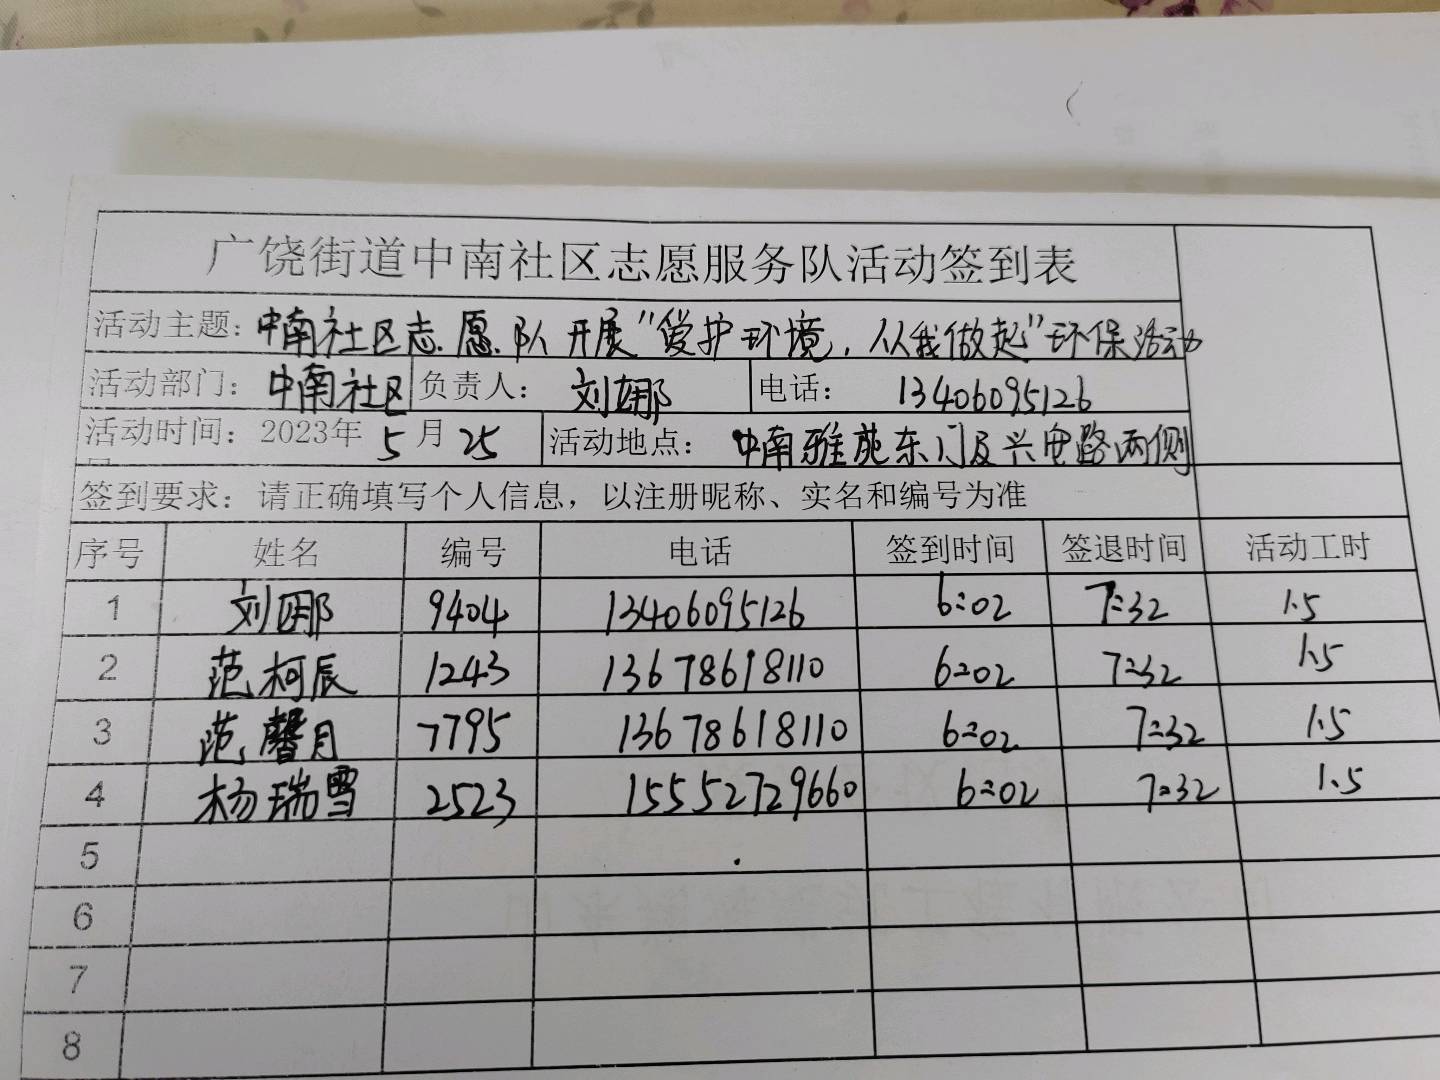 广饶街道中南社区志愿服务队活动签到表
活动主题：中南社区志愿队开展"爱护环境，从我做起"环保活动
活动部门：中南社区 负责人：刘娜 电话：13406095126
活动时间：2023年 5 月 25 活动地点：中南雅苑东门及兴电路两侧
签到要求：请正确填写个人信息，以注册昵称、实名和编号为准
序号 姓名 编号 电话 签到时间 签退时间 活动工时
1 刘娜 9404 13406095126 6:02 7:32 1.5
2 范柯辰 1243 13678618110 6:02 7:32 1.5
3 范馨月 7795 13678618110 6:02 7:32 1.5
4 杨瑞雪 2523 15552729660 6:02 7:32 1.5
5
6
7
8